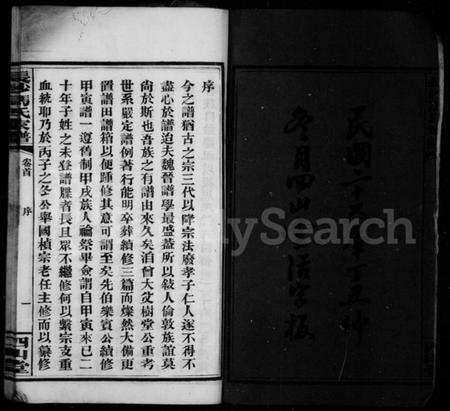 序
今之譜猶古之宗三代以降宗法廢孝子仁人遂不得不
盡心於譜迨夫魏晉譜學最盛蓋所以敍人倫敦族誼莫
尚於斯也吾族之有譜由來久矣洎曾大父樹堂公重考
世系嚴定譜例著行能明卒葬續修三篇而燦然大備更
置譜田譜箱以便踵修其意可謂至矣先伯樂賓公續修
甲寅譜一遵舊制甲戌族人禴祭畢僉謂自甲寅來已二
十年子姓之未登譜牒者長且眾不繼修何以繫宗支重
血統耶乃於丙子之冬公舉國楨宗老任主修而以纂修
氏家譜
卷首
序
一
四山堂
民國二十六年丁丑仲
冬月四山堂活字板
MySearch